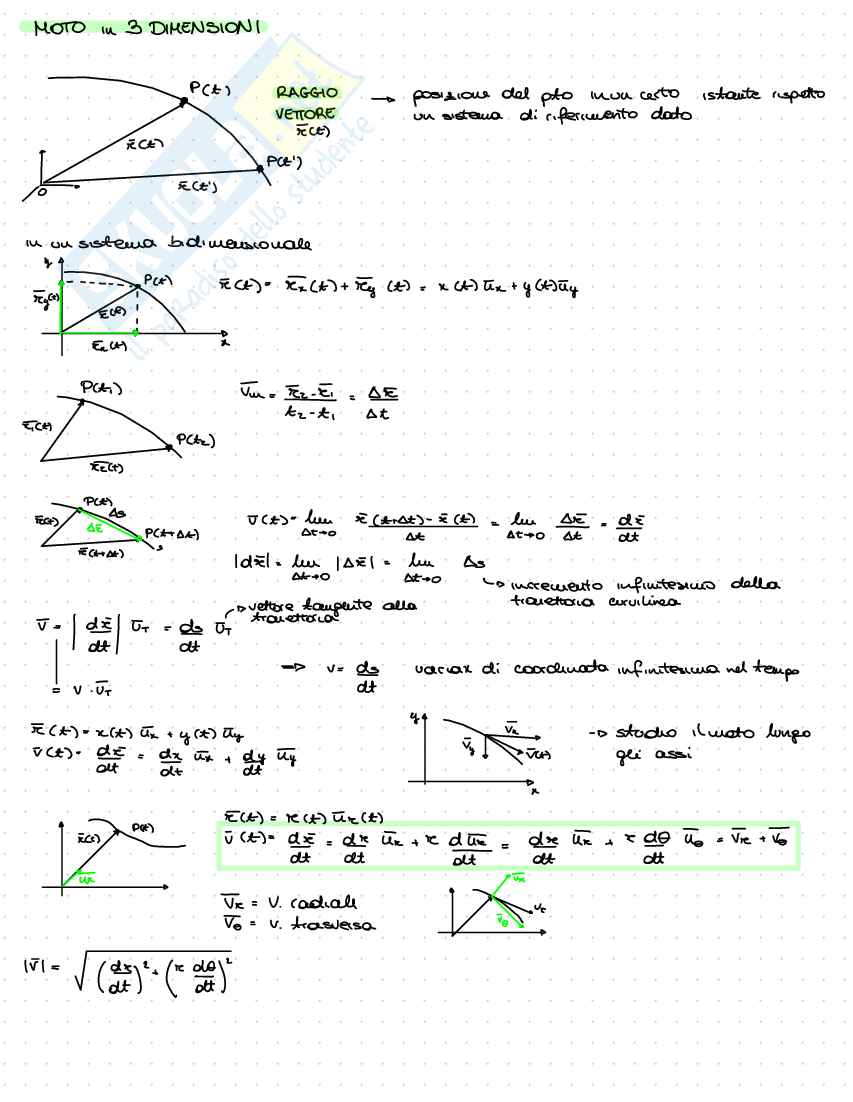 MOTO in 3 DIMENSIONI
P(t)
RAGGIO VETTORE r̄(t) → posizione del pto in un certo istante rispetto
un sistema di riferimento dato
r̄(t)
P(t')
r̄(t')
O
in un sistema bidimensionale
y
P(t)
r̄y(t)
r̄(t)
r̄x(t)
x
r̄(t) = r̄x(t) + r̄y(t) = x(t) ūx + y(t) ūy
P(t1)
r̄1(t)
P(t2)
r̄2(t)
v̄m = (r̄2 - r̄1)/(t2 - t1) = Δr̄/Δt
P(t)
Δs
r̄(t)
Δr̄
P(t+Δt)
r̄(t+Δt)
s
v̄(t) = lim Δt→0 (r̄(t+Δt) - r̄(t))/Δt = lim Δt→0 Δr̄/Δt = dr̄/dt
|dr̄| = lim Δt→0 |Δr̄| = lim Δt→0 Δs
↳ incremento infinitesimo della
traiettoria curvilinea
→ vettore tangente alla
traiettoria
v̄ = |dr̄/dt| ūT = ds/dt ūT
= v · ūT
→ v = ds/dt variaz di coordinata infinitesima nel tempo
r̄(t) = x(t) ūx + y(t) ūy
v̄(t) = dr̄/dt = dx/dt ūx + dy/dt ūy
y
v̄x
v̄y
v̄(t)
x
→ studio il moto lungo
gli assi
r̄(t)
P(t)
ūr
r̄(t) = r(t) ūr(t)
v̄(t) = dr̄/dt = dr/dt ūr + r dūr/dt = dr/dt ūr + r dθ/dt ūθ = v̄r + v̄θ
v̄r = v. radiale
v̄θ = v. trasversa
v̄r
vt
v̄θ
|v̄| = √((dr/dt)² + (r dθ/dt)²)
SKUOLA.net
il paradiso dello studente